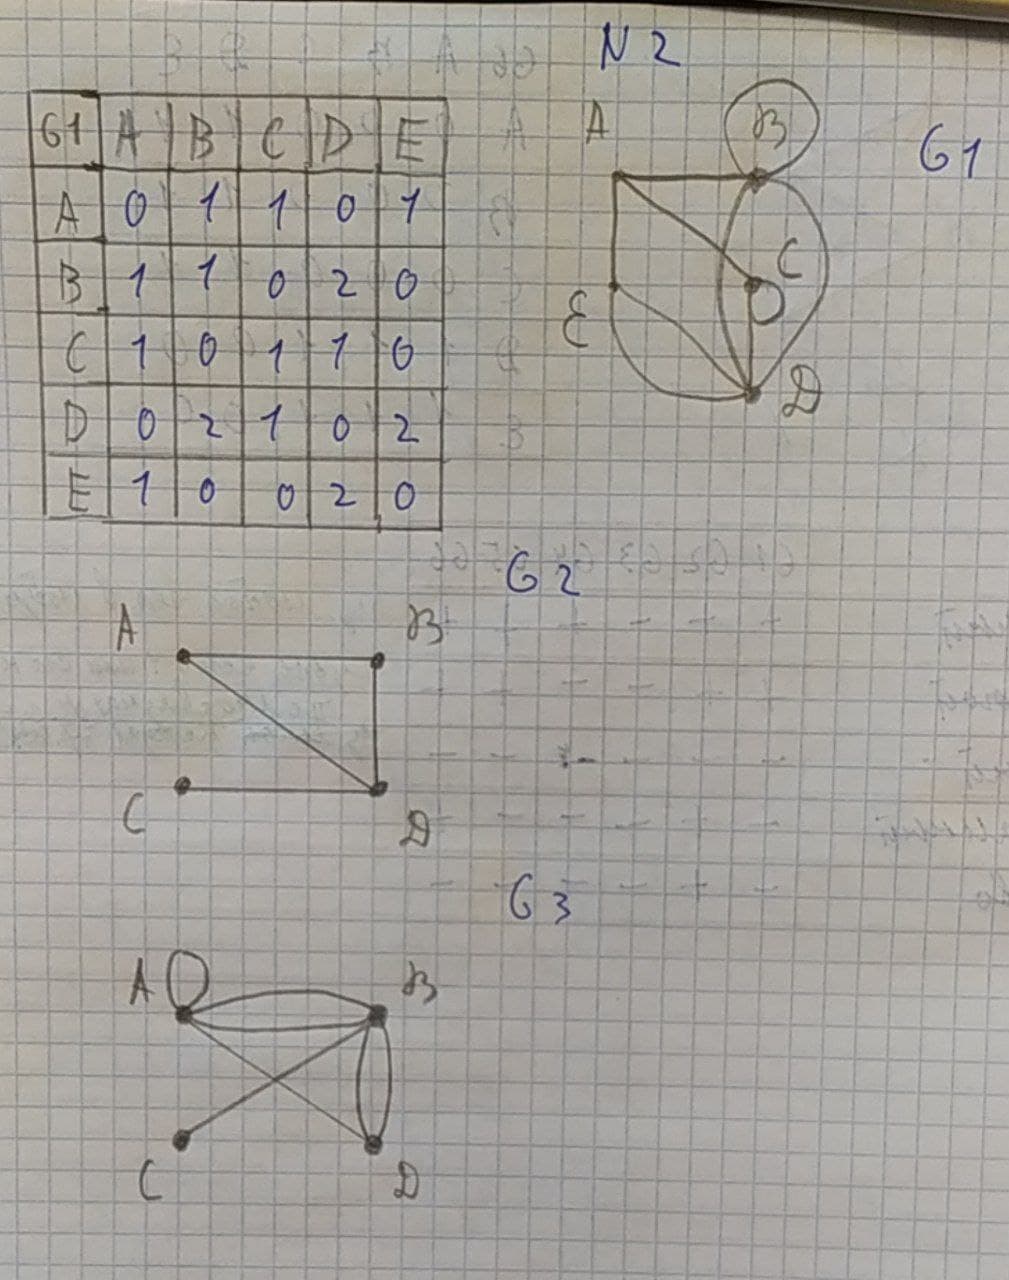 N 2
G1 A B C D E
A 0 1 1 0 1
B 1 1 0 2 0
C 1 0 1 1 0
D 0 2 1 0 2
E 1 0 0 2 0
A B G1
C
E
D
G2
A B
C D
G3
A B
C D